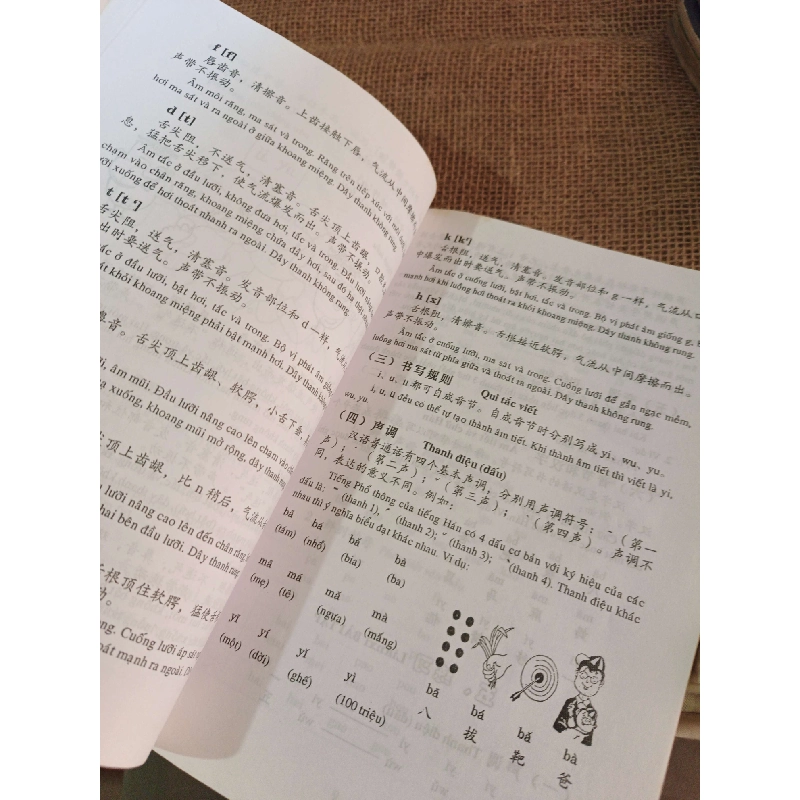 f [f]
唇齿音，清擦音。上齿接触下唇，气流从中间摩擦
声带不振动。
Âm môi răng, ma sát và trong. Răng trên tiếp xúc với môi dưới,
hơi ma sát và ra ngoài ở giữa khoang miệng. Dây thanh không rung.
d [t]
舌尖阻，不送气，清塞音。舌尖顶上齿龈，口腔
息，猛把舌尖移下，使气流爆发而出。声带不振动。
Âm tắc ở đầu lưỡi, không đưa hơi, tắc và trong. Đầu lưỡi nâng
chạm vào chân răng, khoang miệng chứa đầy hơi, sau đó hạ thật nhanh
lưỡi xuống để hơi thoát nhanh ra ngoài. Dây thanh không rung.
t [t‘]
舌尖阻，送气，清塞音。发音部位和 d 一样，气流
出时要送气。声带不振动。
ắc ở đầu lưỡi, bật hơi, tắc và trong. Bộ vị phát âm giống
thoát khỏi khoang miệng phải bật mạnh hơi. Dây thanh không rung.
音。舌尖顶上齿龈、软腭，小舌下垂，
i, âm mũi. Đầu lưỡi nâng cao lên chạm vào
xuống, khoang miệng mũi mở rộng, dây thanh rung
顶上齿龈，比 n 稍后，气流从
lưỡi nâng cao lên đến chân răng,
hai bên đầu lưỡi. Dây thanh rung
舌根顶住软腭，猛使
动。
ng. Cuống lưỡi áp
oát mạnh ra ngoài
k [k‘]
舌根阻，送气，清塞音。发音部位和 g 一样，气流从口
中爆发而出时要送气。声带不振动。
Âm tắc ở cuống lưỡi, bật hơi, tắc và trong. Bộ vị phát âm giống g,
mạnh hơi khi luồng hơi thoát ra khỏi khoang miệng. Dây thanh không rung.
h [x]
舌根阻，清擦音。舌根接近软腭，气流从中间摩擦而出。
声带不振动。
Âm tắc ở cuống lưỡi, ma sát và trong. Cuống lưỡi để gần ngạc mềm,
luồng hơi ma sát từ phía giữa và thoát ra ngoài. Dây thanh không rung.
（三）书写规则 Qui tắc viết
i、u、ü 都可自成音节。自成音节时分别写成 yi、wu、yu。
i, u, ü đều có thể tự tạo thành âm tiết. Khi thành âm tiết thì viết là yi,
wu, yu.
（四）声调 Thanh điệu (dấu)
汉语普通话有四个基本声调，分别用声调符号：ˉ（第一
声）；ˊ（第二声）；ˇ（第三声）；ˋ（第四声）。声调不
同，表达的意义不同。例如：
Tiếng Phổ thông của tiếng Hán có 4 dấu cơ bản với ký hiệu của các
dấu là: ˉ (thanh 1), ˊ (thanh 2); ˇ (thanh 3); ˋ (thanh 4). Thanh điệu khác
nhau thì ý nghĩa biểu đạt khác nhau. Ví dụ:
bā bá bǎ bà
(tám) (nhổ) (bia) (ba)
mā má mǎ mà
(mẹ) (tê) (ngựa) (mắng)
yī yí yǐ yì
(một) (dời) (ghế) (100 triệu)
bā bá bǎ bà
八 拔 靶 爸